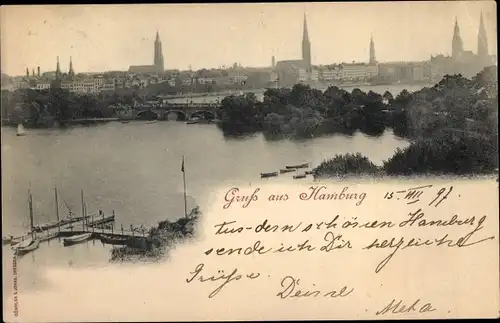 Gruß aus Hamburg 15. VIII 97.
Aus dem schönen Hamburg
sende ich Dir herzliche
Grüße
Deine
Meta